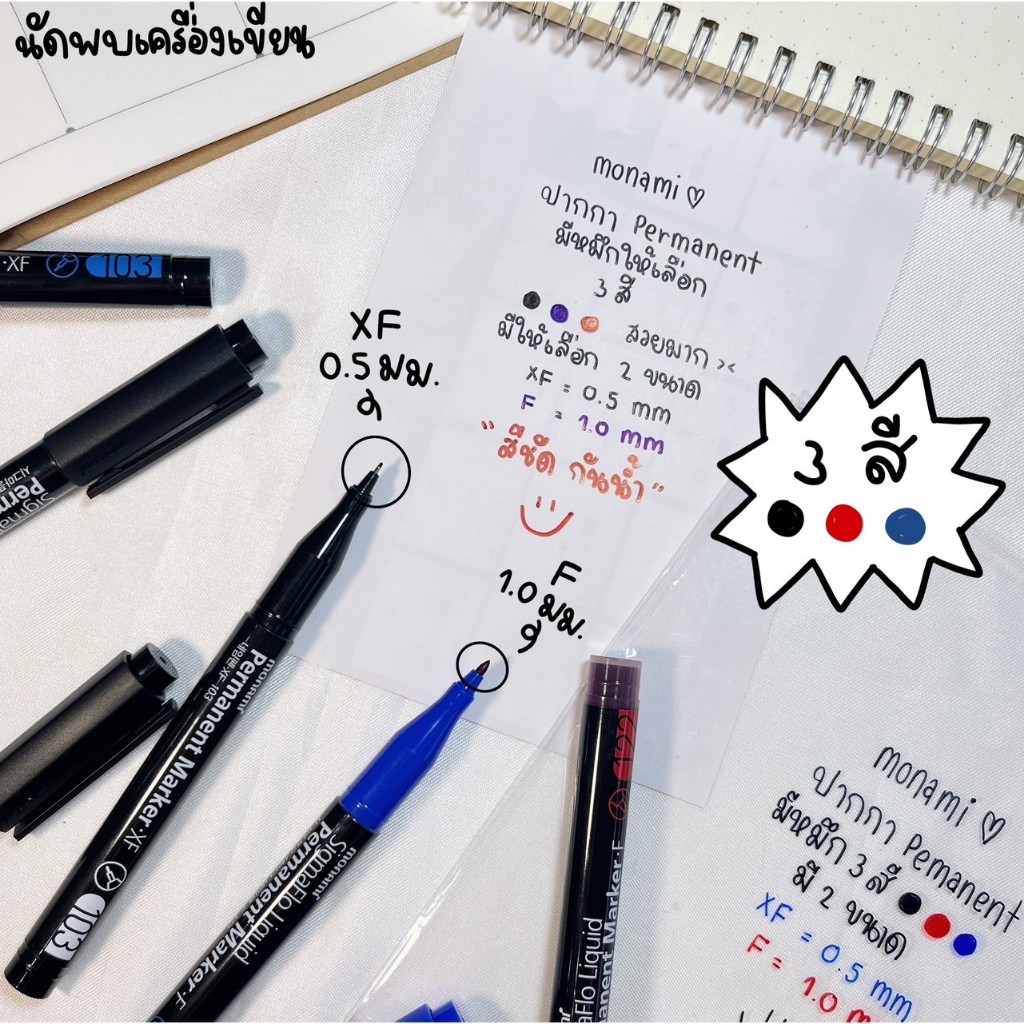 นัดพบเครื่องเขียน
monami ♡
ปากกา Permanent
มีหมึกให้เลือก
3 สี
สวยมาก ><
มีให้เลือก 2 ขนาด
XF = 0.5 mm
F = 1.0 mm
"สีชัด กันน้ำ"
XF
0.5 มม.
F
1.0 มม.
3 สี
·XF 103
Permanent Marker·XF
monami
네임펜·XF·103
103
monami
SigmaFlo Liquid
Permanent Marker·F
122
aFlo Liquid
nanent Marker·F
monami ♡
ปากกา Pemanent
มีหมึก 3 สี
มี 2 ขนาด
XF = 0.5 mm
F = 1.0 m